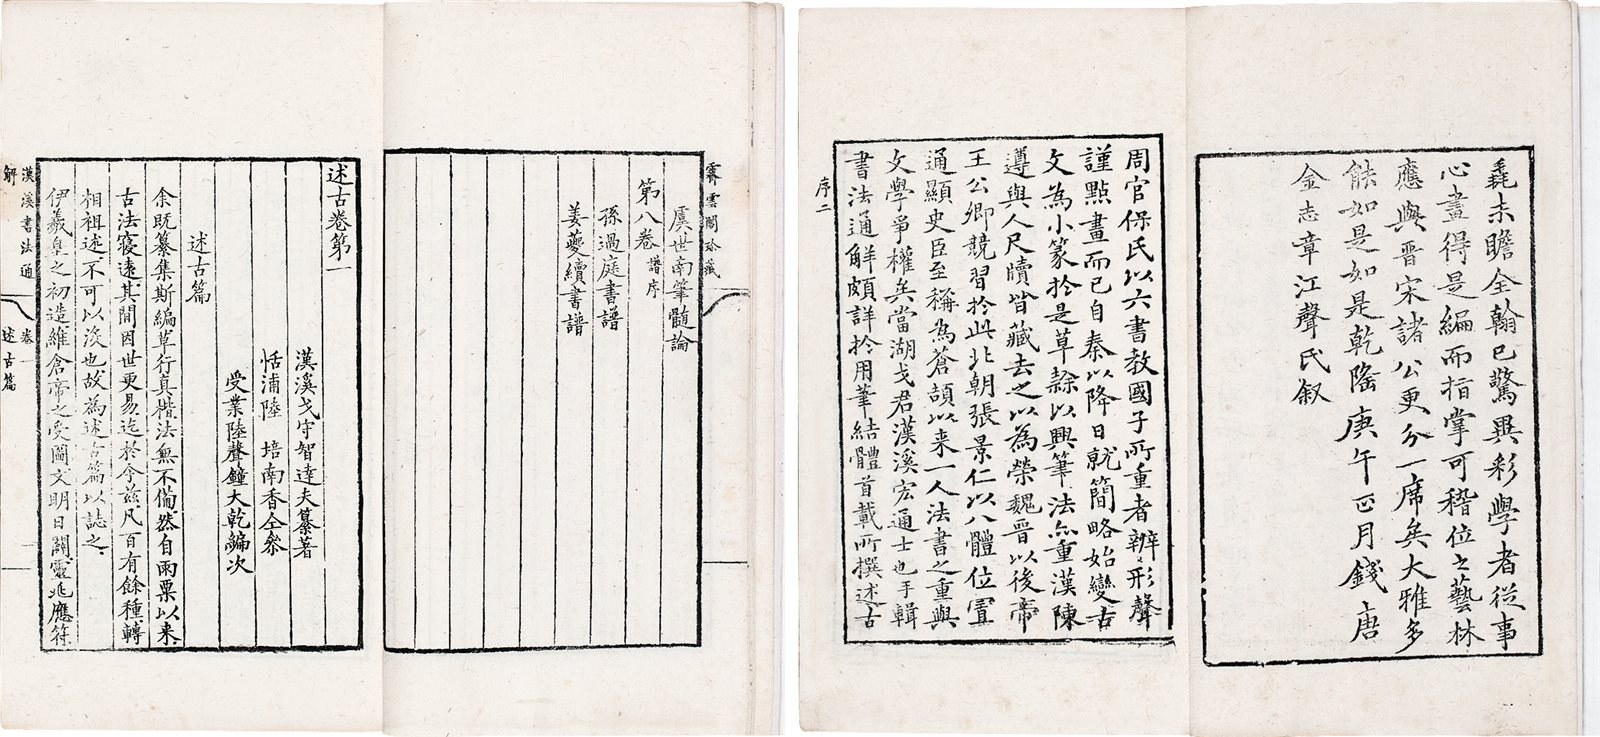 毳未瞻全翰已驚異彩學者從事
心畫得是編而指掌可稽位之藝林
應與晉宋諸公更分一席矣大雅多
能如是如是乾隆庚午正月錢唐
金志章江聲氏叙
周官保氏以六書教國子所重者辨形聲
謹點畫而已自秦以降日就簡略始變古
文為小篆於是草隸以興筆法亦重漢陳
遵與人尺牘皆藏去之以為榮魏晉以後帝
王公卿競習於此北朝張景仁以八體位置
通顯史臣至稱為蒼頡以来一人法書之重與
文學爭權矣當湖戈君漢溪宏通士也手輯
書法通解頗詳於用筆結體首載所撰述古
序二
霽雲閣珍藏
虞世南筆髓論
第八卷 譜序
孫過庭書譜
姜夔續書譜
述古卷第一
漢溪戈守智達夫纂著
恬浦陸 培南香仝叅
受業陸聲鐘大乾編次
述古篇
余既纂集斯編草行真楷法無不備然自雨粟以来
古法寖遠其間因世更易迄於今兹凡百有餘種轉
相祖述不可以没也故為述古篇以誌之
伊羲皇之初造維倉帝之受圖文明日闢靈兆應符
漢溪書法通
解
卷一
述古篇